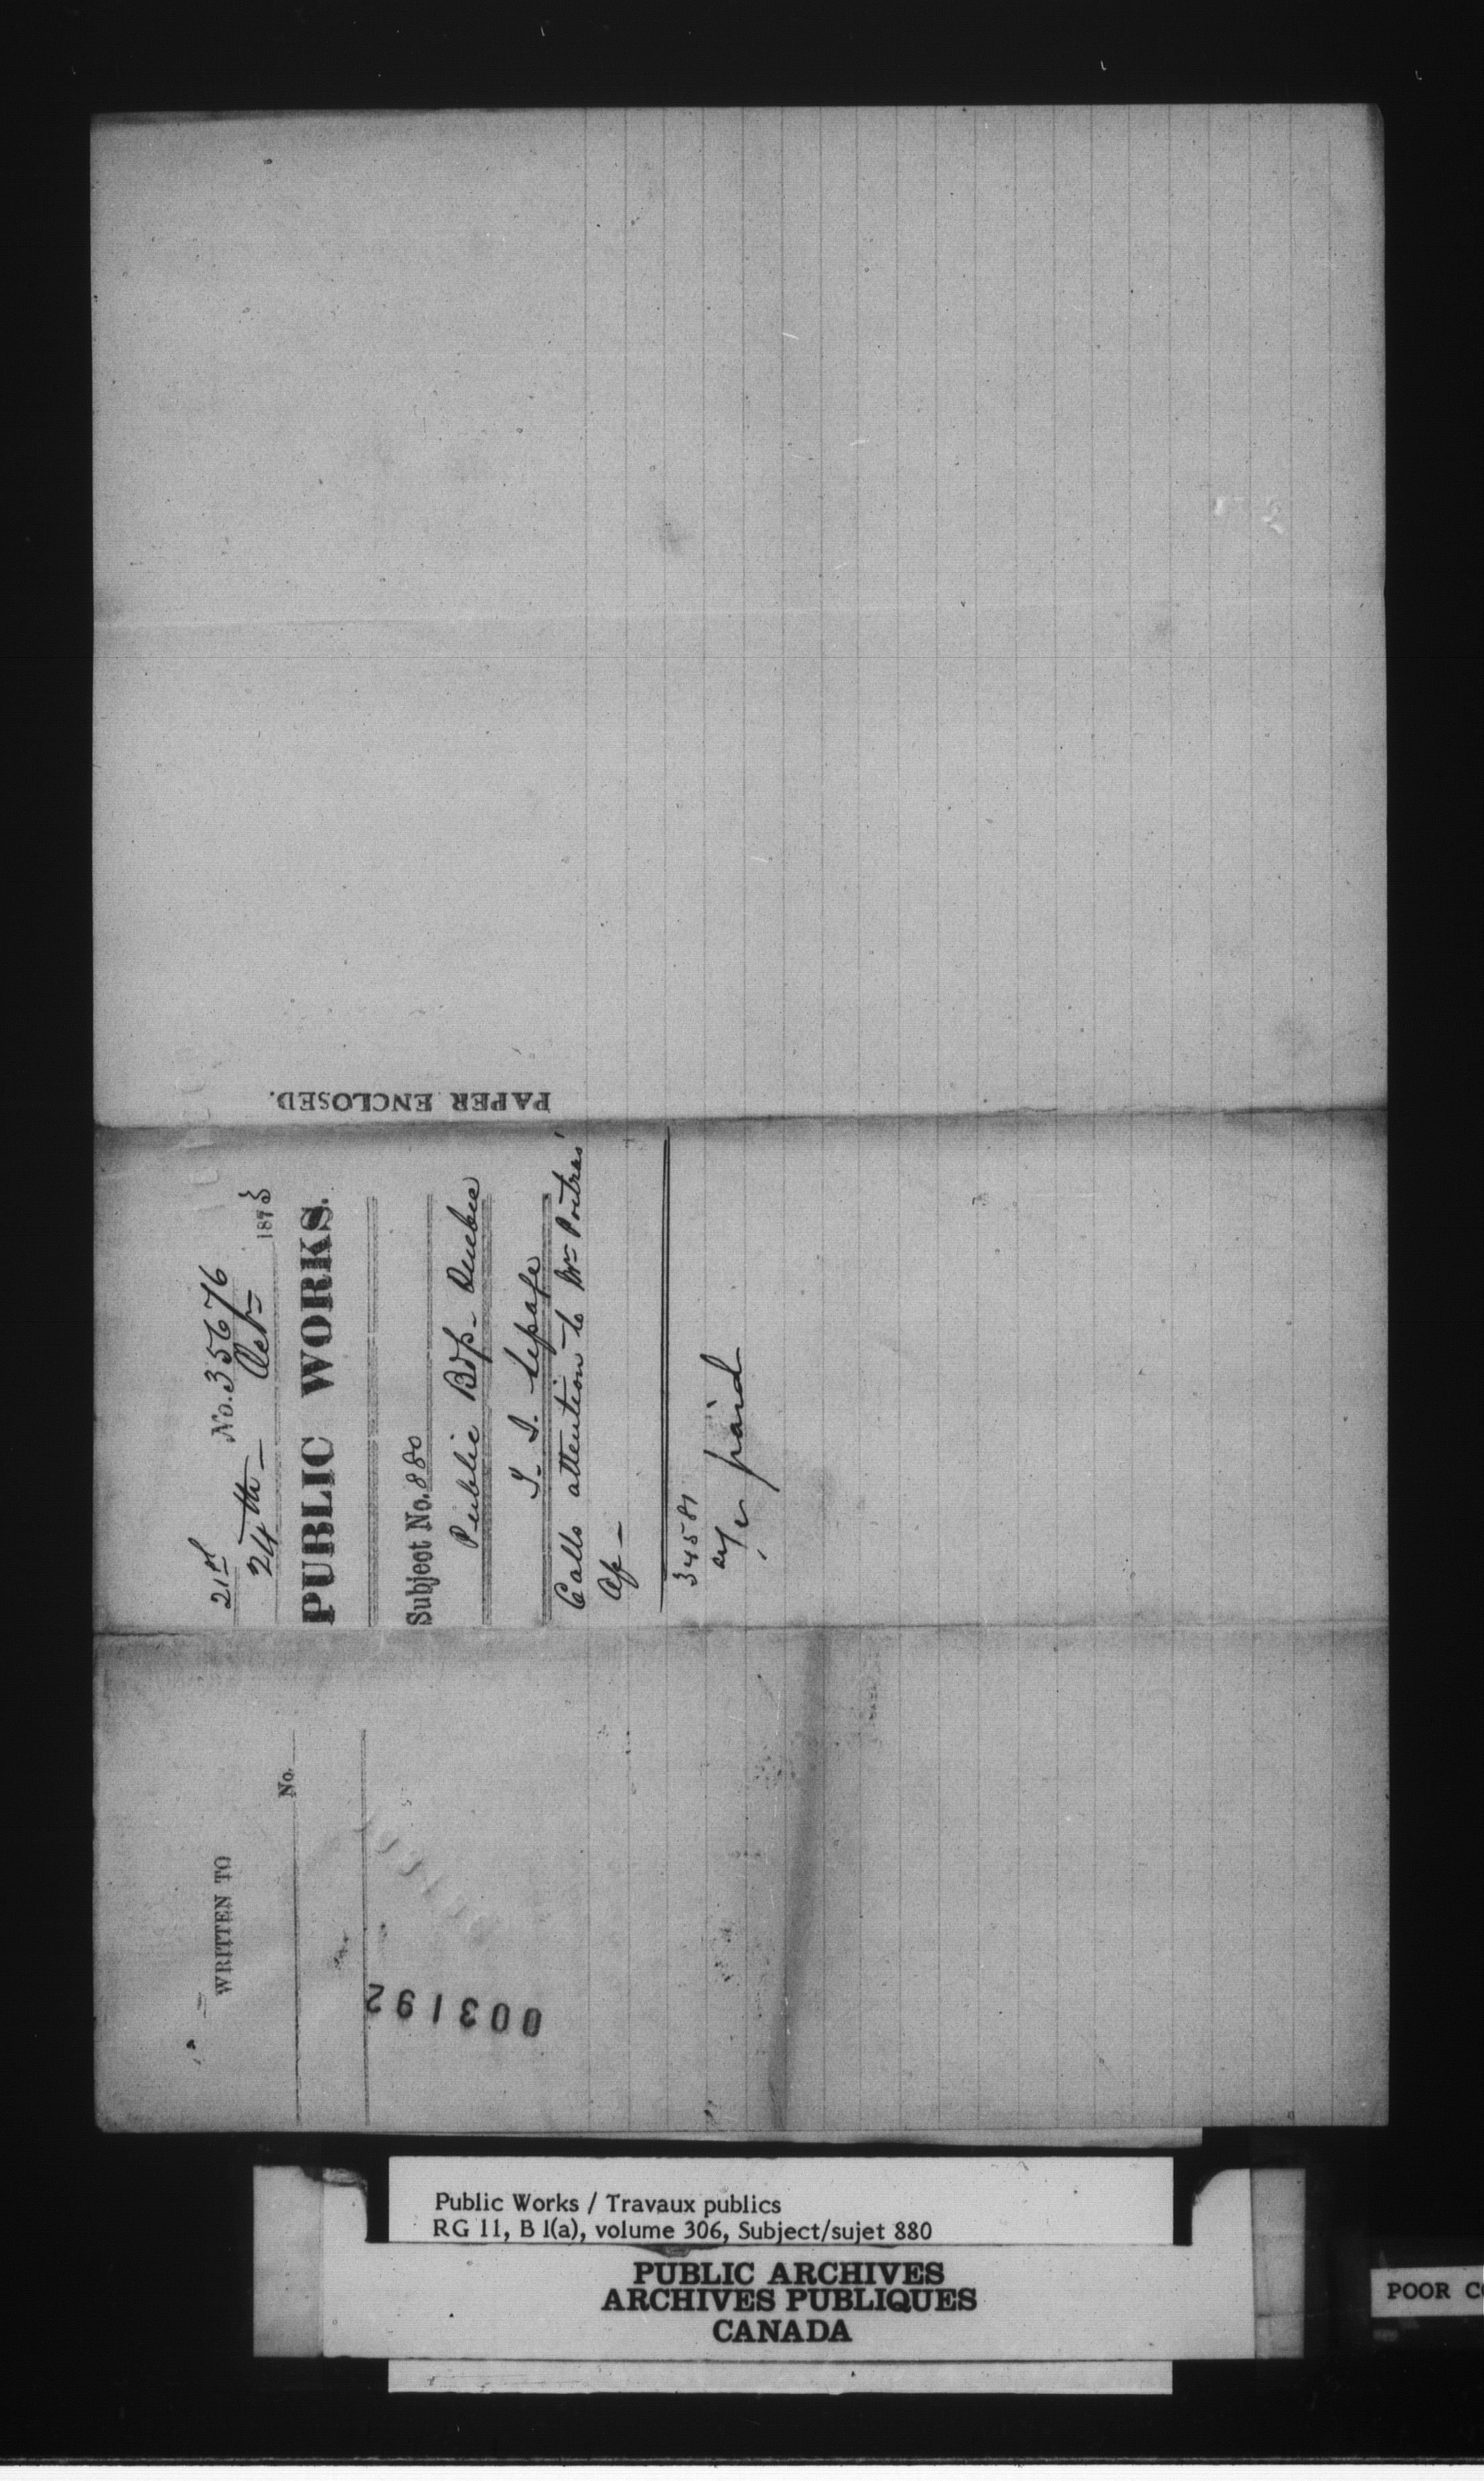 PAPER ENCLOSED.
21st No. 35676
24th Oct 1873
PUBLIC WORKS.
Subject No. 880
Public Bdgs Quebec
Lepage
Calls attention to Mr Poitras'
34581
a/c paid
WRITTEN TO
No.
003192
Public Works / Travaux publics
RG 11, B 1(a), volume 306, Subject/sujet 880
PUBLIC ARCHIVES
ARCHIVES PUBLIQUES
CANADA
POOR